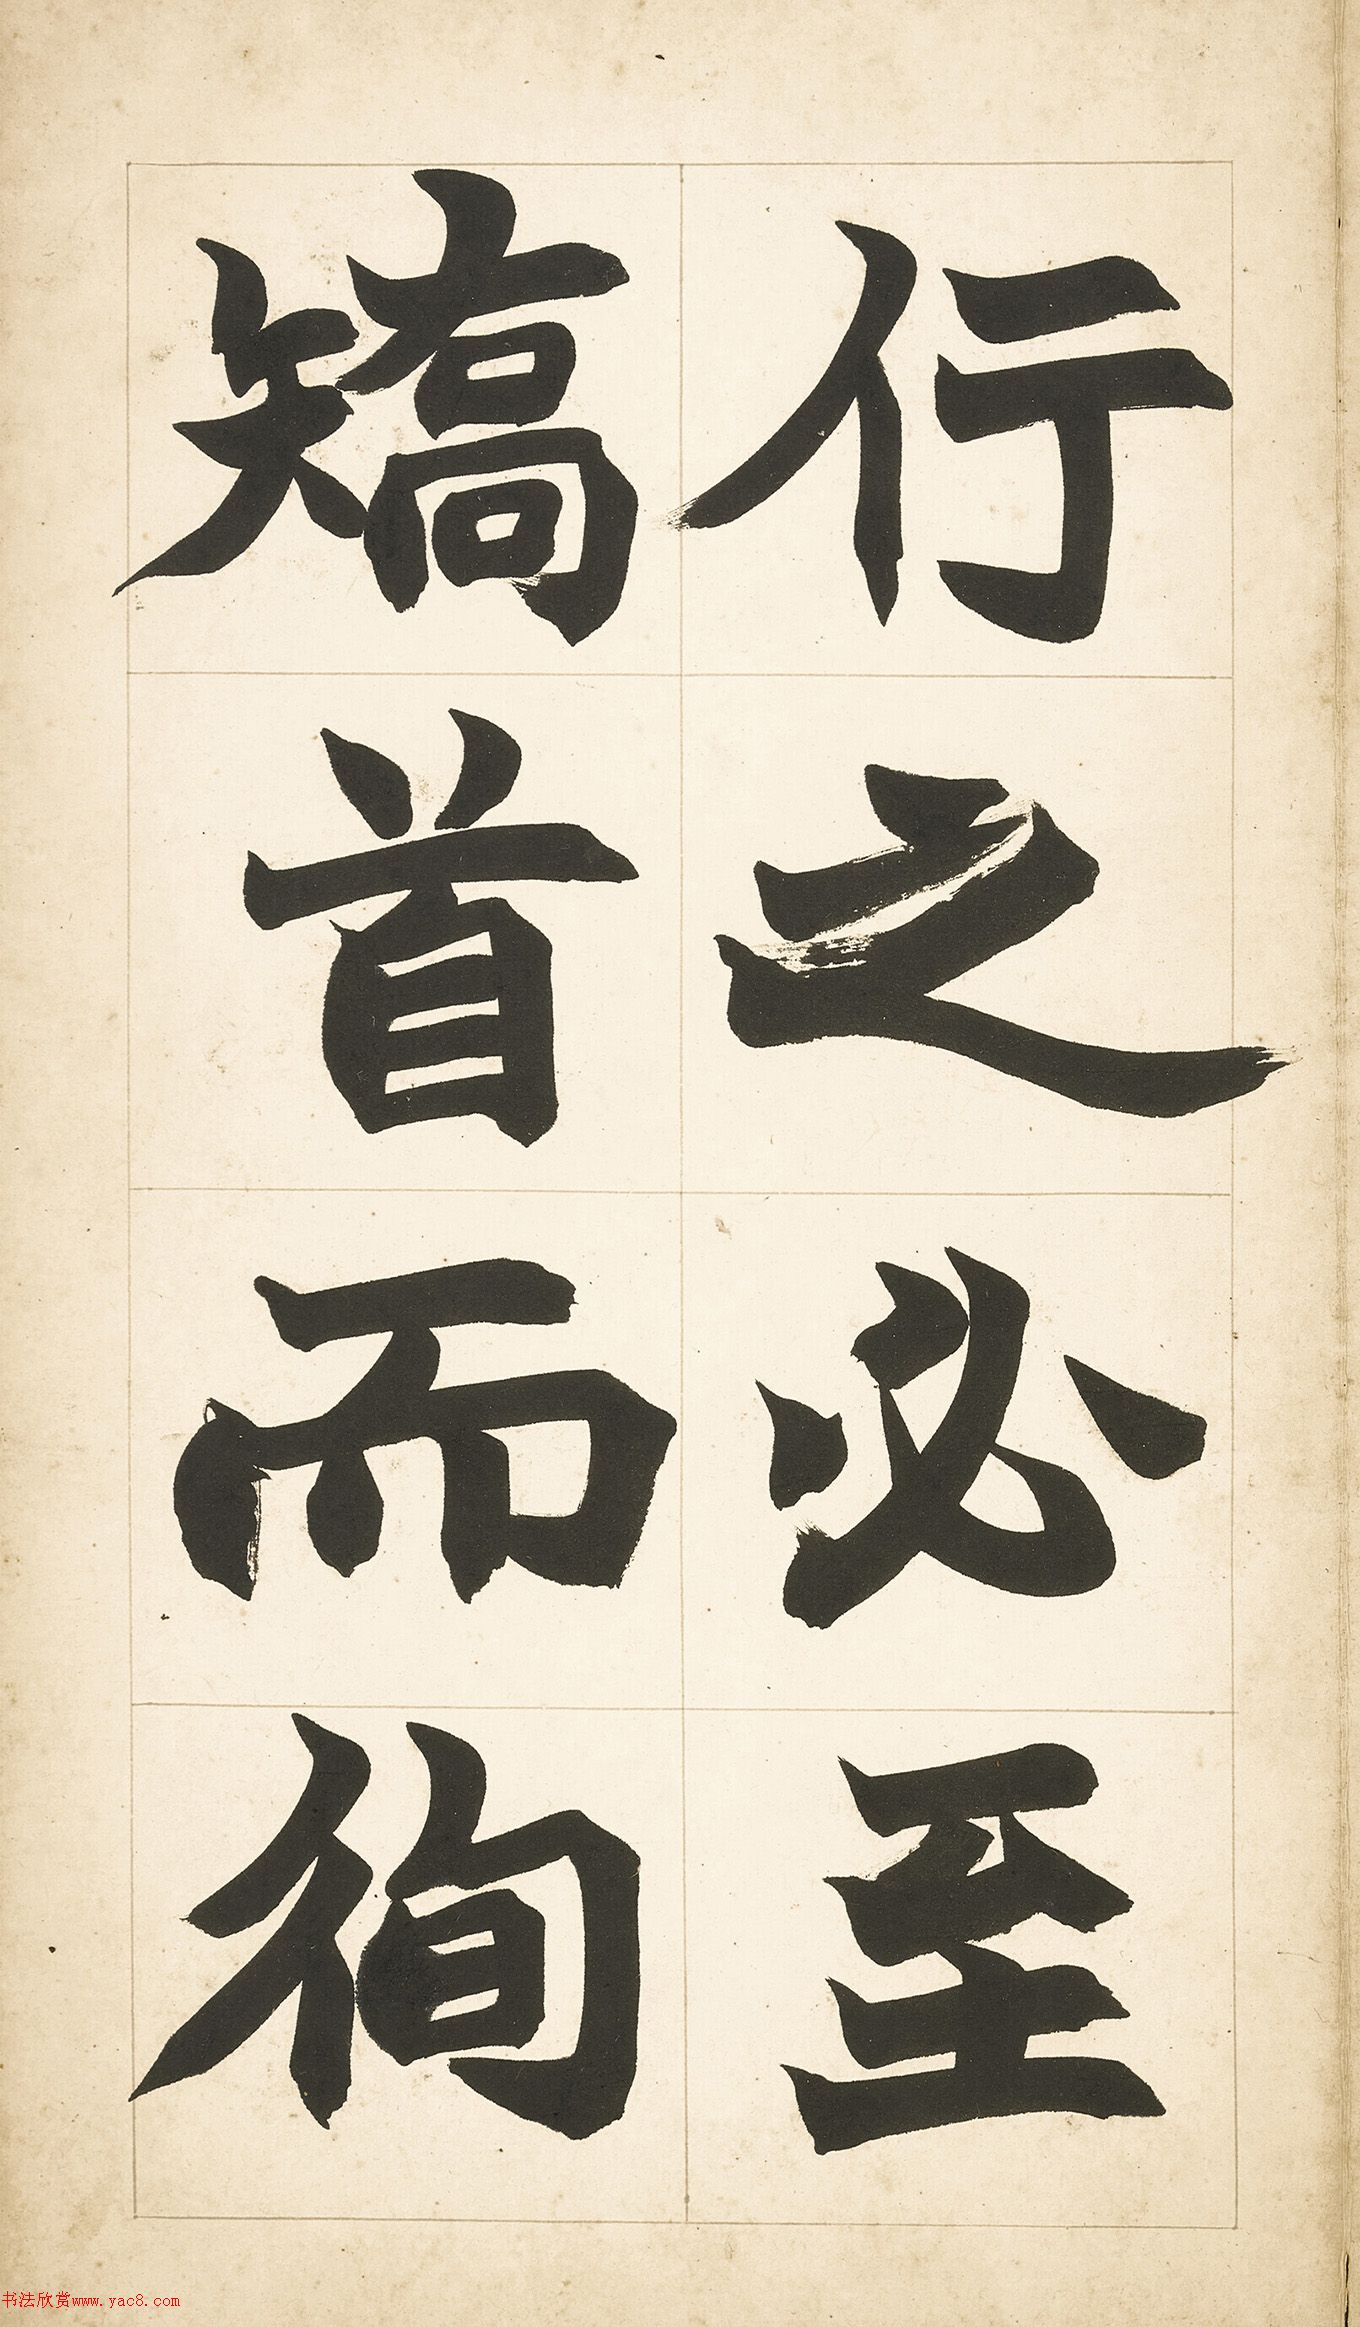 行之必至
矯首而徇
书法欣赏www.yac8.com